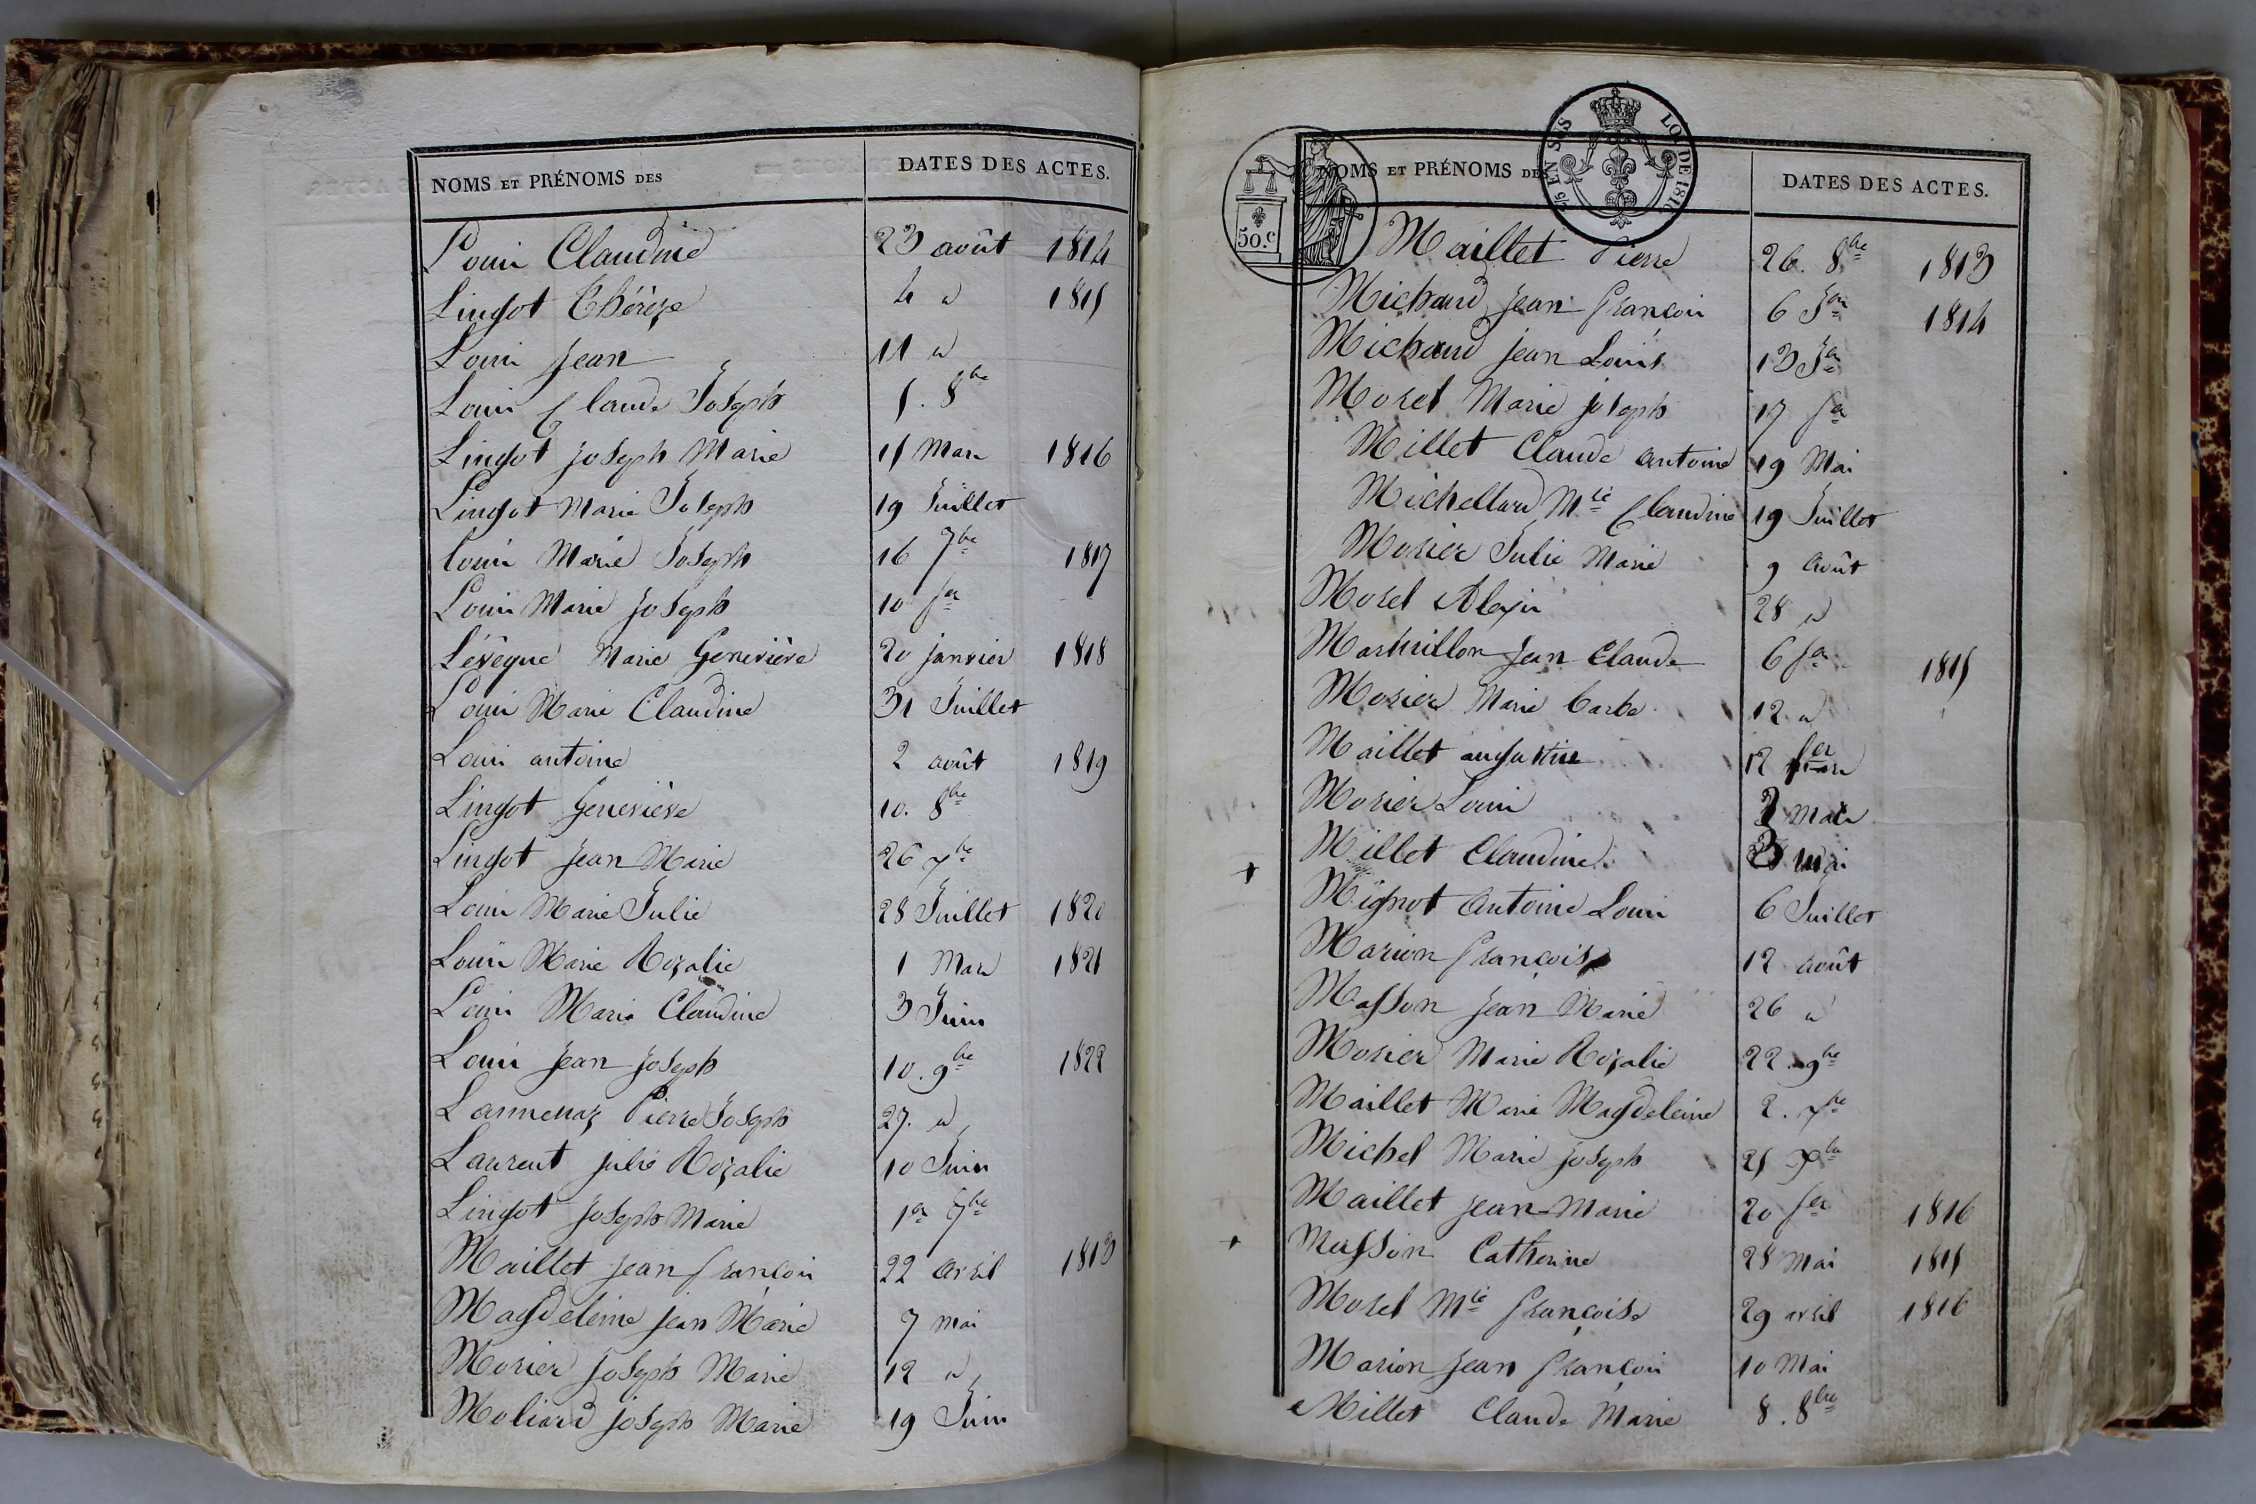 NOMS ET PRÉNOMS DES DATES DES ACTES.
Louis Claudine 23 août 1814
Lingot Thérèze 4 d 1815
Louis Jean 11 d
Louis Claude Joseph 5. 8bre
Lingot Joseph Marie 15 Mars 1816
Lingot Marie Joseph 19 Juillet
Louis Marie Joseph 16 7bre 1817
Louis Marie Joseph 10 fer
Lévêque Marie Geneviève 20 janvier 1818
Louis Marie Claudine 31 Juillet
Louis antoine 2 août 1819
Lingot Geneviève 10. 8bre
Lingot Jean Marie 26 xbre
Louis Marie Julie 28 Juillet 1820
Louis Marie Rozalie 1 Mars 1821
Louis Marie Claudine 3 Juin
Louis Jean Joseph 10. 9bre 1822
Lanmenaz Pierre Joseph 27. d
Laurent Julie Rozalie 10 Juin
Lingot Joseph Marie 1er 7bre
Maillet Jean françois 22 avril 1813
Magdeleine Jean Marie 7 mai
Morier Joseph Marie 12 d
Moliard Joseph Marie 19 Juin
NOMS ET PRÉNOMS DES DATES DES ACTES.
50.c
25 EN SUS
LOI DE 1816
Maillet Pierre 26. 8bre 1813
Michaud Jean françois 6 Jer 1814
Michaud Jean Louis 13 Jer
Morel Marie Joseph 17 fer
Millet Claude antoine 19 Mai
Michellard Mie Claudine 19 Juillet
Morier Julie Marie 9 août
Morel Alexis 28 d
Marhillon Jean Claude 6 fer 1815
Morier Marie barbe 12 d
Maillet augustine 12 fer
Morier Louis 3 Mars
Millet Claudine 3 mai
Mignot Antoine Louis 6 Juillet
Marion françoise 12 août
Masson Jean Marie 26 d
Morier Marie Rozalie 22. 9bre
Maillet Marie Magdeleine 2. xbre
Michel Marie Joseph 25 xbre
Maillet Jean Marie 20 fer 1816
Masson Catherine 28 Mai 1815
Morel Mie françoise 29 avril 1816
Marion Jean françois 10 Mai
Millet Claude Marie 8. 8bre